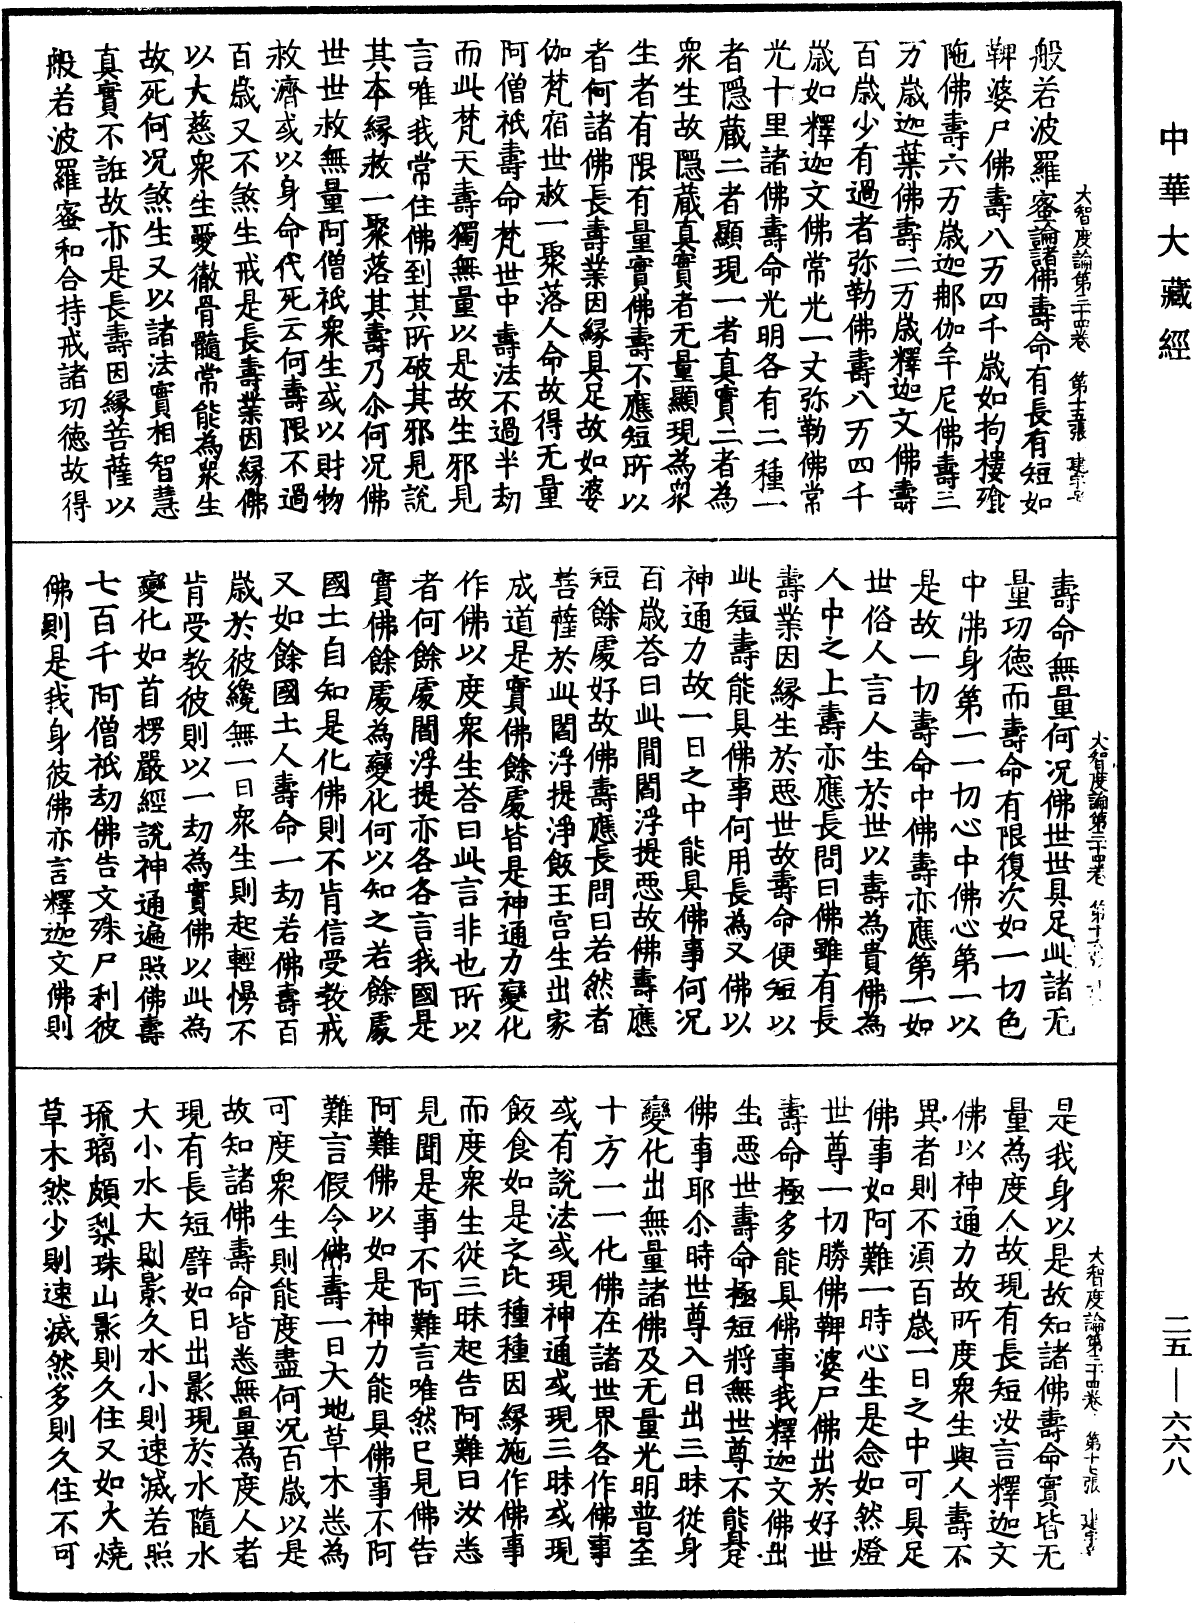 中華大藏經
大智度論第三十四卷　第十五張　建字号
般若波羅蜜論諸佛壽命有長有短如
鞞婆尸佛壽八万四千歲如拘樓飡
陁佛壽六万歲迦那伽牟尼佛壽三
万歲迦葉佛壽二万歲釋迦文佛壽
百歲少有過者弥勒佛壽八万四千
歲如釋迦文佛常光一丈弥勒佛常
光十里諸佛壽命光明各有二種一
者隱藏二者顯現一者真實二者為
衆生故隱藏真實者无量顯現為衆
生者有限有量實佛壽不應短所以
者何諸佛長壽業因緣具足故如婆
伽梵宿世救一聚落人命故得无量
阿僧祇壽命梵世中壽法不過半劫
而此梵天壽獨無量以是故生邪見
言唯我常住佛到其所破其邪見說
其本緣救一聚落其壽乃尒何況佛
世世救無量阿僧祇衆生或以財物
救濟或以身命代死云何壽限不過
百歲又不煞生戒是長壽業因緣佛
以大慈衆生愛徹骨髓常能為衆生
故死何況煞生又以諸法實相智慧
真實不誑故亦是長壽因緣菩薩以
般若波羅蜜和合持戒諸功德故得
大智度論第三十四卷　第十六張
壽命無量何況佛世世具足此諸无
量功德而壽命有限復次如一切色
中佛身第一一切心中佛心第一以
是故一切壽命中佛壽亦應第一如
世俗人言人生於世以壽為貴佛為
人中之上壽亦應長問曰佛雖有長
壽業因緣生於惡世故壽命便短以
此短壽能具佛事何用長為又佛以
神通力故一日之中能具佛事何況
百歲荅曰此間閻浮提惡故佛壽應
短餘處好故佛壽應長問曰若然者
菩薩於此閻浮提淨飯王宮生出家
成道是實佛餘處皆是神通力變化
作佛以度衆生荅曰此言非也所以
者何餘處閻浮提亦各各言我國是
實佛餘處為變化何以知之若餘處
國土自知是化佛則不肯信受教戒
又如餘國土人壽命一劫若佛壽百
歲於彼纔無一日衆生則起輕慢不
肯受教彼則以一劫為實佛以此為
變化如首楞嚴經說神通遍照佛壽
七百千阿僧祇劫佛告文殊尸利彼
佛則是我身彼佛亦言釋迦文佛則
大智度論第三十四卷　第十七張　建字号
是我身以是故知諸佛壽命實皆无
量為度人故現有長短汝言釋迦文
佛以神通力故所度衆生與人壽不
異者則不須百歲一日之中可具足
佛事如阿難一時心生是念如然燈
世尊一切勝佛鞞婆尸佛出於好世
壽命極多能具佛事我釋迦文佛出
生惡世壽命極短將無世尊不能具足
佛事耶尒時世尊入日出三昧從身
變化出無量諸佛及无量光明普至
十方一一化佛在諸世界各作佛事
或有說法或現神通或現三昧或現
飯食如是之比種種因緣施作佛事
而度衆生從三昧起告阿難曰汝悉
見聞是事不阿難言唯然已見佛告
阿難佛以如是神力能具佛事不阿
難言假令佛壽一日大地草木悉為
可度衆生則能度盡何況百歲以是
故知諸佛壽命皆悉無量為度人者
現有長短譬如日出影現於水隨水
大小水大則影久水小則速滅若照
琉璃頗梨珠山影則久住又如火燒
草木然少則速滅然多則久住不可
二五—六六八